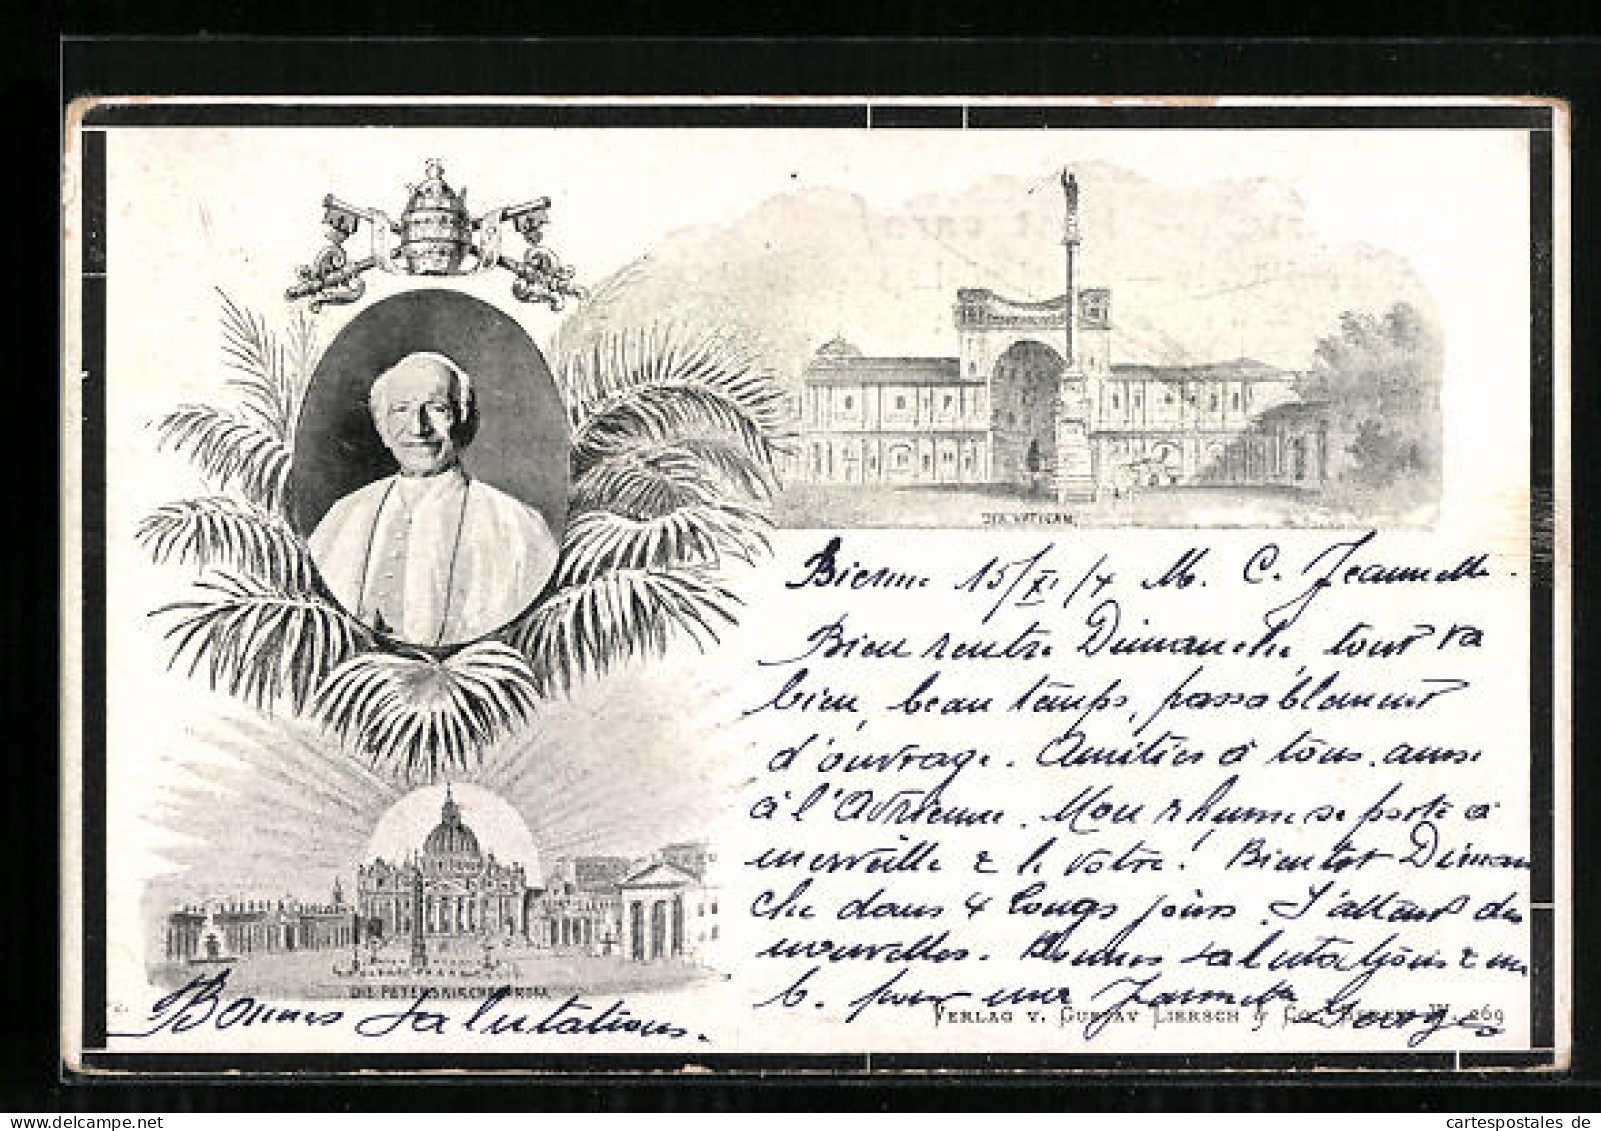 DER VATICAN.
Bienne 15/XI/4 M. C. Jeannette.
Bien rentré Dimanche, tout va
bien, beau temps, passablement
d'ouvrage. Amitiés à tous, aussi
à l'Adrienne. Mon rhume se porte à
merveille & le vôtre? Bientôt Diman
che dans 4 longs jours. J'attend des
nouvelles. Bonnes salutations &
b. pour ma Jeannette
Georges
DIE PETERSKIRCHE ROM.
Bonnes salutations.
VERLAG V. GUSTAV LIERSCH & CO., BERLIN W. 269
cartespostales.de